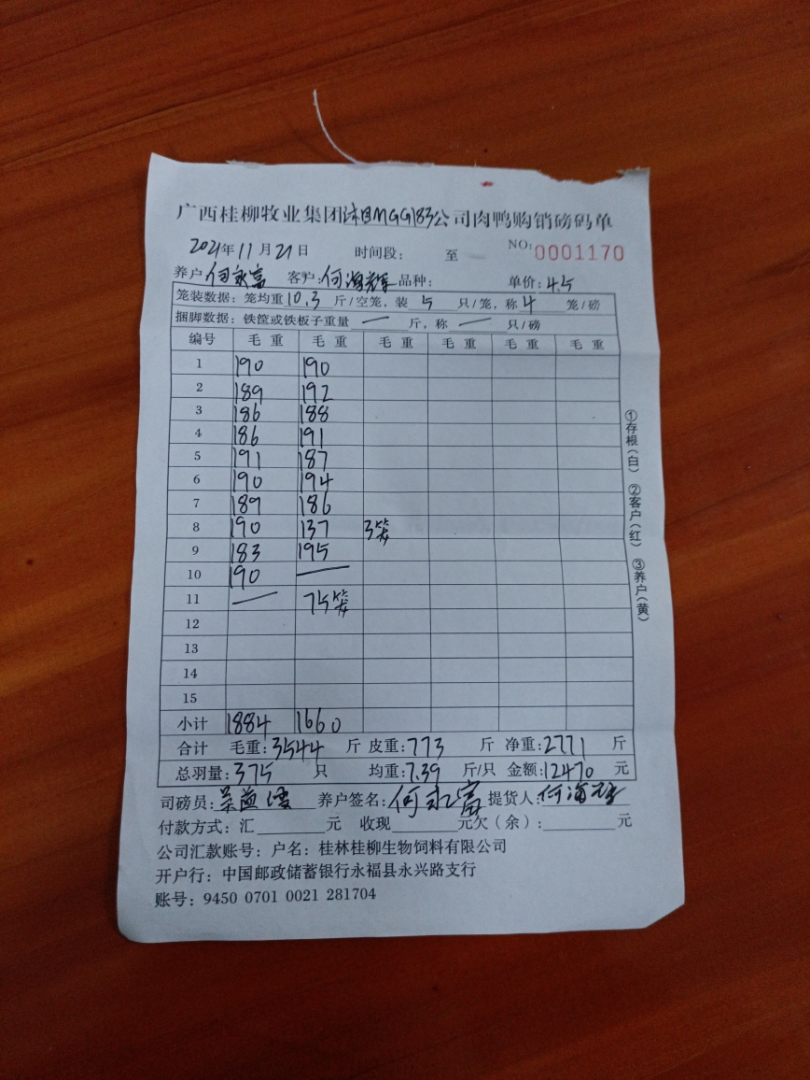 广西桂柳牧业集团沐BMGG183公司肉鸭购销磅码单
2021年11月21日 时间段: 至 NO:0001170
养户何永富 客户:何海辉 品种: 单价:4.5
笼装数据:笼均重10.3斤/空笼,装5只/笼,称4笼/磅
捆脚数据:铁筐或铁板子重量 — 斤,称 — 只/磅
编号 毛重 毛重 毛重 毛重 毛重 毛重
1 190 190
2 189 192
3 186 188
4 186 191
5 191 187
6 190 194
7 189 186
8 190 137 3笼
9 183 195
10 190 —
11 — 75笼
12
13
14
15
小计 1884 1660
合计 毛重:3544斤 皮重:773斤 净重:2771斤
总羽量:375只 均重:7.39斤/只 金额:12470元
司磅员: 养户签名:何永富 提货人:何海辉
付款方式:汇 元 收现 元欠(余): 元
公司汇款账号:户名:桂林桂柳生物饲料有限公司
开户行:中国邮政储蓄银行永福县永兴路支行
账号:9450 0701 0021 281704
①存根(白) ②客户(红) ③养户(黄)